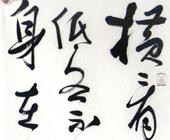 横看
低各不
身在